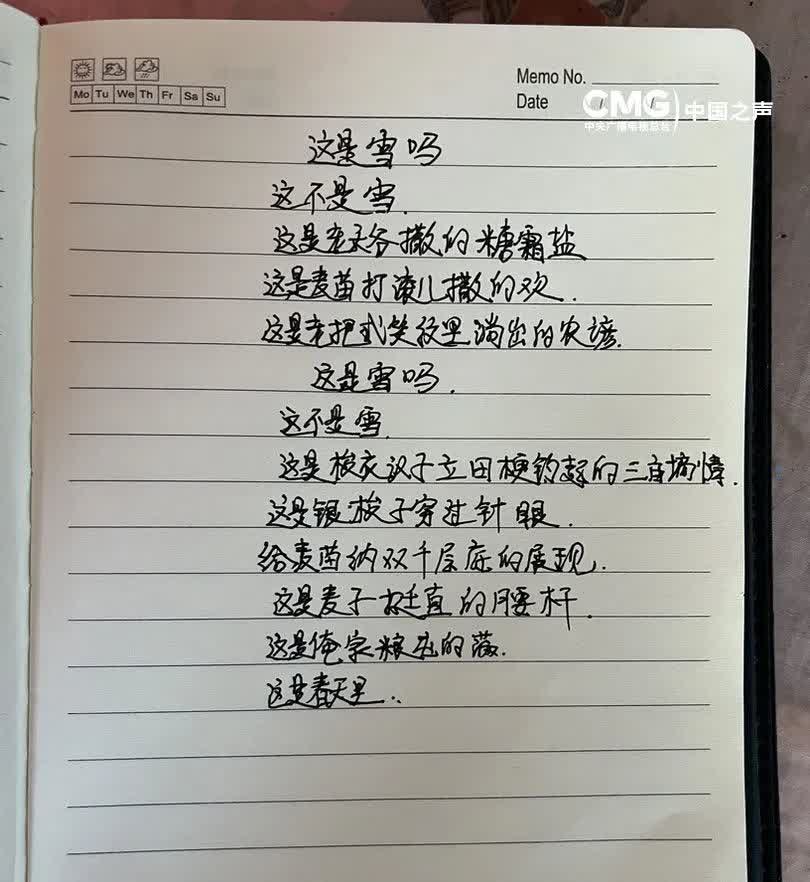 Mo Tu We Th Fr Sa Su
Memo No.
Date / /
CMG 中国之声
中央广播电视总台
这是雪吗
这不是雪.
这是老天爷撒的糖霜盐
这是麦苗打滚儿撒的欢.
这是老把式笑纹里淌出的农谚.
这是雪吗.
这不是雪
这是 田埂 的三 墒情.
这是银梭子穿过针眼.
给麦苗纳双千层底的展现.
这是麦子挺直的腰杆.
这是俺家粮 的
这是春天里..